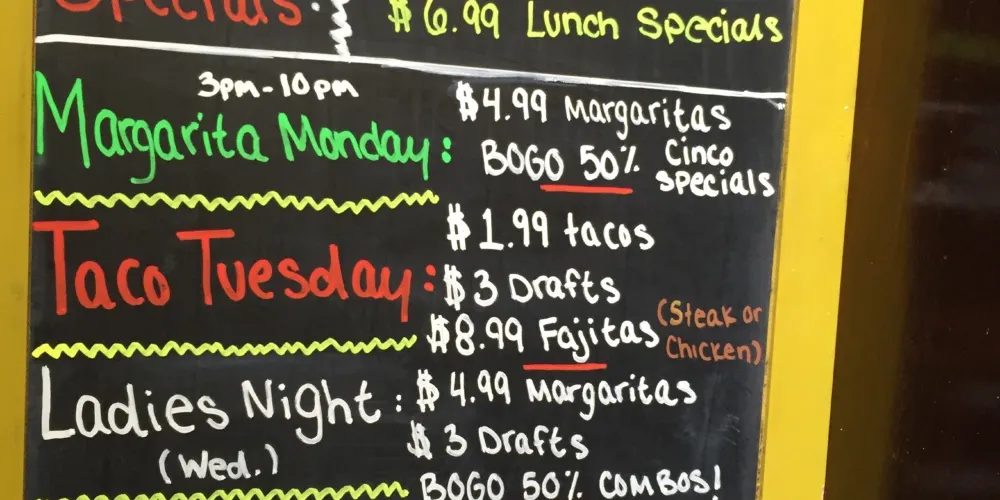 Specials:
$6.99 Lunch Specials
3pm-10pm
Margarita Monday:
$4.99 Margaritas
BOGO 50% Cinco Specials
Taco Tuesday:
$1.99 tacos
$3 Drafts
$8.99 Fajitas (Steak or Chicken)
Ladies Night:
(Wed.)
$4.99 Margaritas
$3 Drafts
BOGO 50% COMBOS!